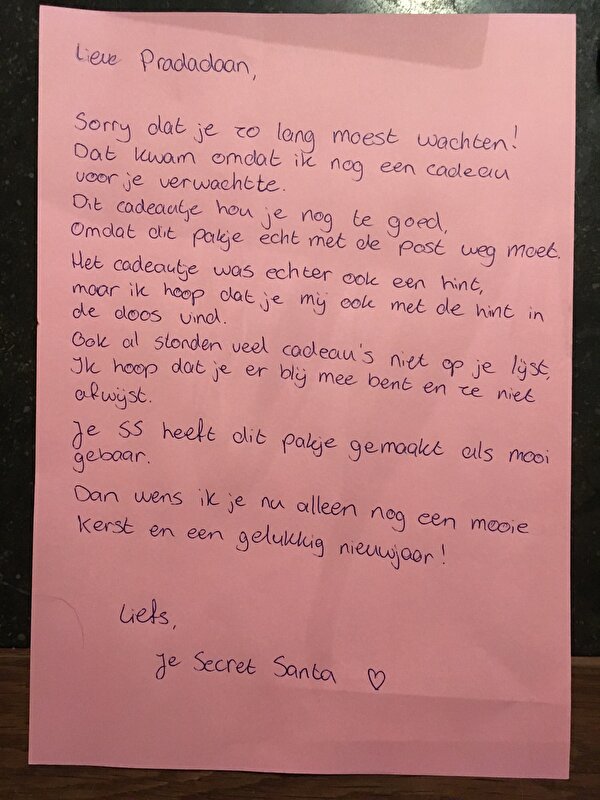 Lieve Pradadaan,
Sorry dat je zo lang moest wachten!
Dat kwam omdat ik nog een cadeau
voor je verwachtte.
Dit cadeautje hou je nog te goed,
Omdat dit pakje echt met de post weg moet.
Het cadeautje was echter ook een hint,
maar ik hoop dat je mij ook met de hint in
de doos vind.
Ook al stonden veel cadeau's niet op je lijst,
Ik hoop dat je er blij mee bent en ze niet
afwijst.
Je SS heeft dit pakje gemaakt als mooi
gebaar.
Dan wens ik je nu alleen nog een mooie
Kerst en een gelukkig nieuwjaar!
Liefs,
Je Secret Santa ♡